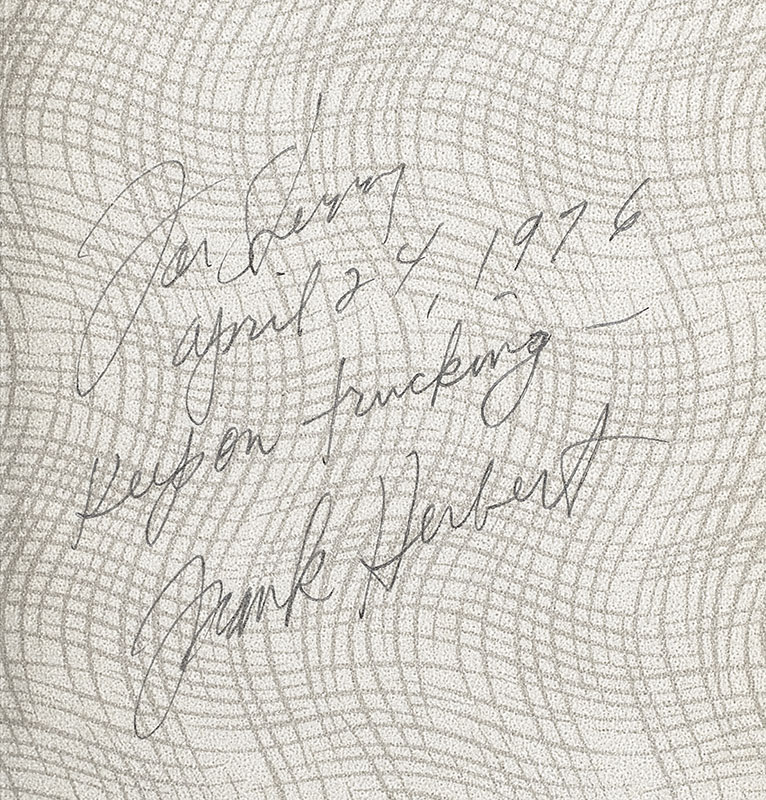 For
April 24, 1976
Keep on trucking —
Frank Herbert